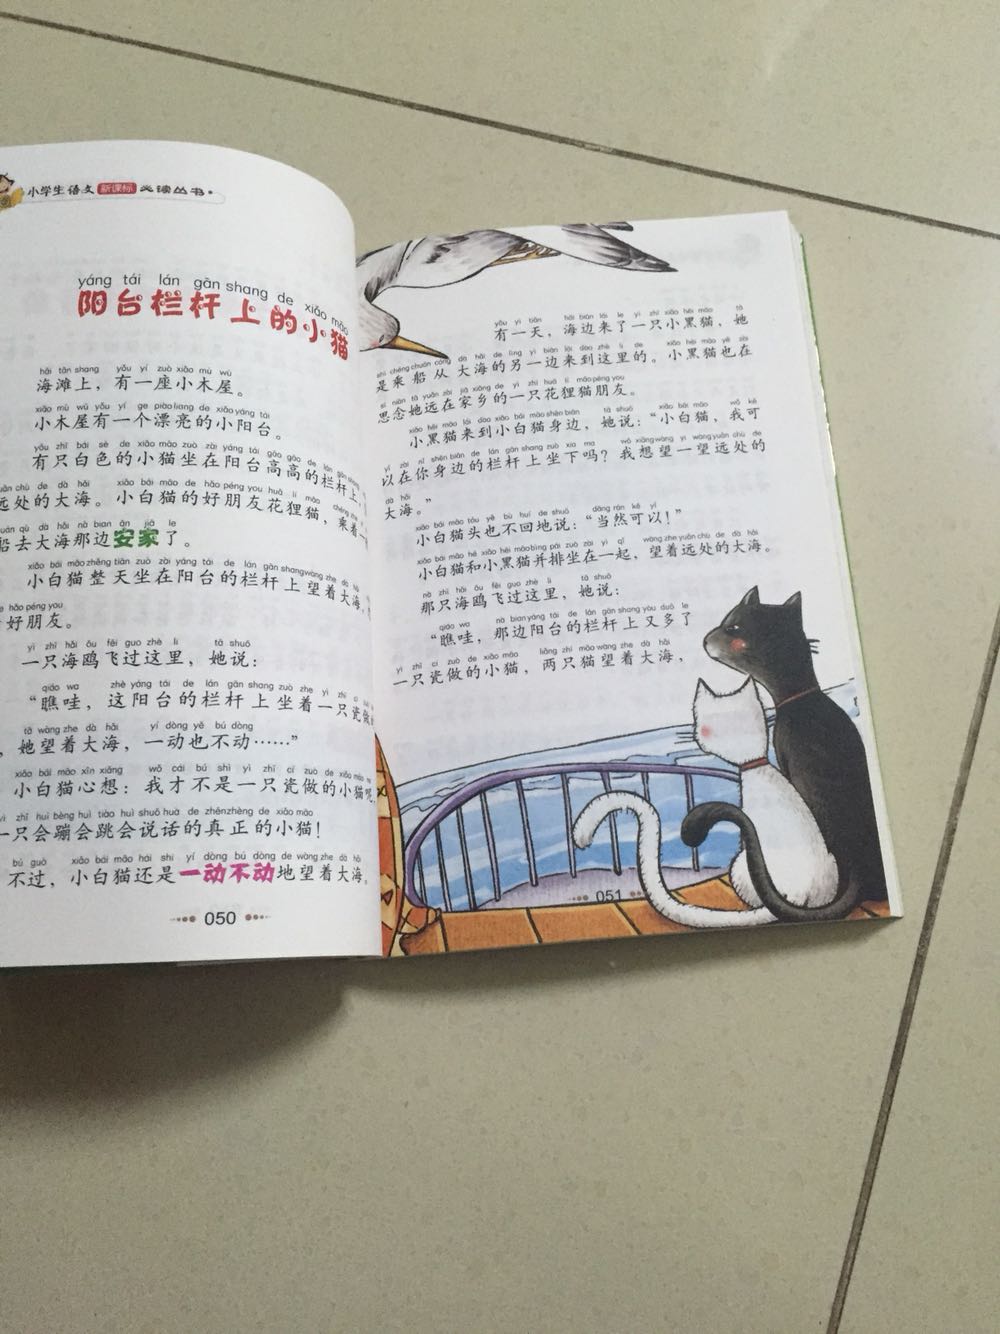 小学生语文 新课标 必读丛书
yáng tái lán gān shang de xiǎo māo
阳台栏杆上的小猫
hǎi tān shang yǒu yí zuò xiǎo mù wū
海滩上，有一座小木屋。
xiǎo mù wū yǒu yí ge piào liang de xiǎo yáng tái
小木屋有一个漂亮的小阳台。
yǒu zhī bái sè de xiǎo māo zuò zài yáng tái gāo gāo de lán gān shang
有只白色的小猫坐在阳台高高的栏杆上，
yuǎn chù de dà hǎi xiǎo bái māo de hǎo péng you huā li māo chéng zhe
远处的大海。小白猫的好朋友花狸猫，乘着一
chuán qù dà hǎi nà bian ān jiā le
船去大海那边安家了。
xiǎo bái māo zhěng tiān zuò zài yáng tái de lán gān shang wàng zhe dà hǎi
小白猫整天坐在阳台的栏杆上望着大海，
hǎo péng you
好朋友。
yì zhī hǎi ōu fēi guo zhè li tā shuō
一只海鸥飞过这里，她说：
qiáo wa zhè yáng tái de lán gān shang zuò zhe yì zhī cí
“瞧哇，这阳台的栏杆上坐着一只瓷做
tā wàng zhe dà hǎi yí dòng yě bú dòng
，她望着大海，一动也不动……”
xiǎo bái māo xīn xiǎng wǒ cái bú shì yì zhī cí zuò de xiǎo māo ne
小白猫心想：我才不是一只瓷做的小猫呢，
yì zhī huì bèng huì tiào huì shuō huà de zhēn zhèng de xiǎo māo
一只会蹦会跳会说话的真正的小猫！
bú guò xiǎo bái māo hái shi yí dòng bú dòng de wàng zhe dà hǎi
不过，小白猫还是一动不动地望着大海。
050
yǒu yì tiān hǎi biān lái le yì zhī xiǎo hēi māo tā
有一天，海边来了一只小黑猫，她
shì chéng chuán cóng dà hǎi de lìng yì biān lái dào zhè li de xiǎo hēi māo yě zài
是乘船从大海的另一边来到这里的。小黑猫也在
sī niàn tā yuǎn zài jiā xiāng de yì zhī huā li māo péng you
思念她远在家乡的一只花狸猫朋友。
xiǎo hēi māo lái dào xiǎo bái māo shēn biān tā shuō xiǎo bái māo wǒ kě
小黑猫来到小白猫身边，她说：“小白猫，我可
yǐ zài nǐ shēn biān de lán gān shang zuò xia ma wǒ xiǎng wàng yi wàng yuǎn chù de
以在你身边的栏杆上坐下吗？我想望一望远处的
dà hǎi
大海。”
xiǎo bái māo tóu yě bù huí de shuō dāng rán kě yǐ
小白猫头也不回地说：“当然可以！”
xiǎo bái māo hé xiǎo hēi māo bìng pái zuò zài yì qǐ wàng zhe yuǎn chù de dà hǎi
小白猫和小黑猫并排坐在一起，望着远处的大海。
nà zhī hǎi ōu fēi guo zhè li tā shuō
那只海鸥飞过这里，她说：
qiáo wa nà bian yáng tái de lán gān shang yòu duō le
“瞧哇，那边阳台的栏杆上又多了
yì zhī cí zuò de xiǎo māo liǎng zhī māo wàng zhe dà hǎi
一只瓷做的小猫，两只猫望着大海，
051